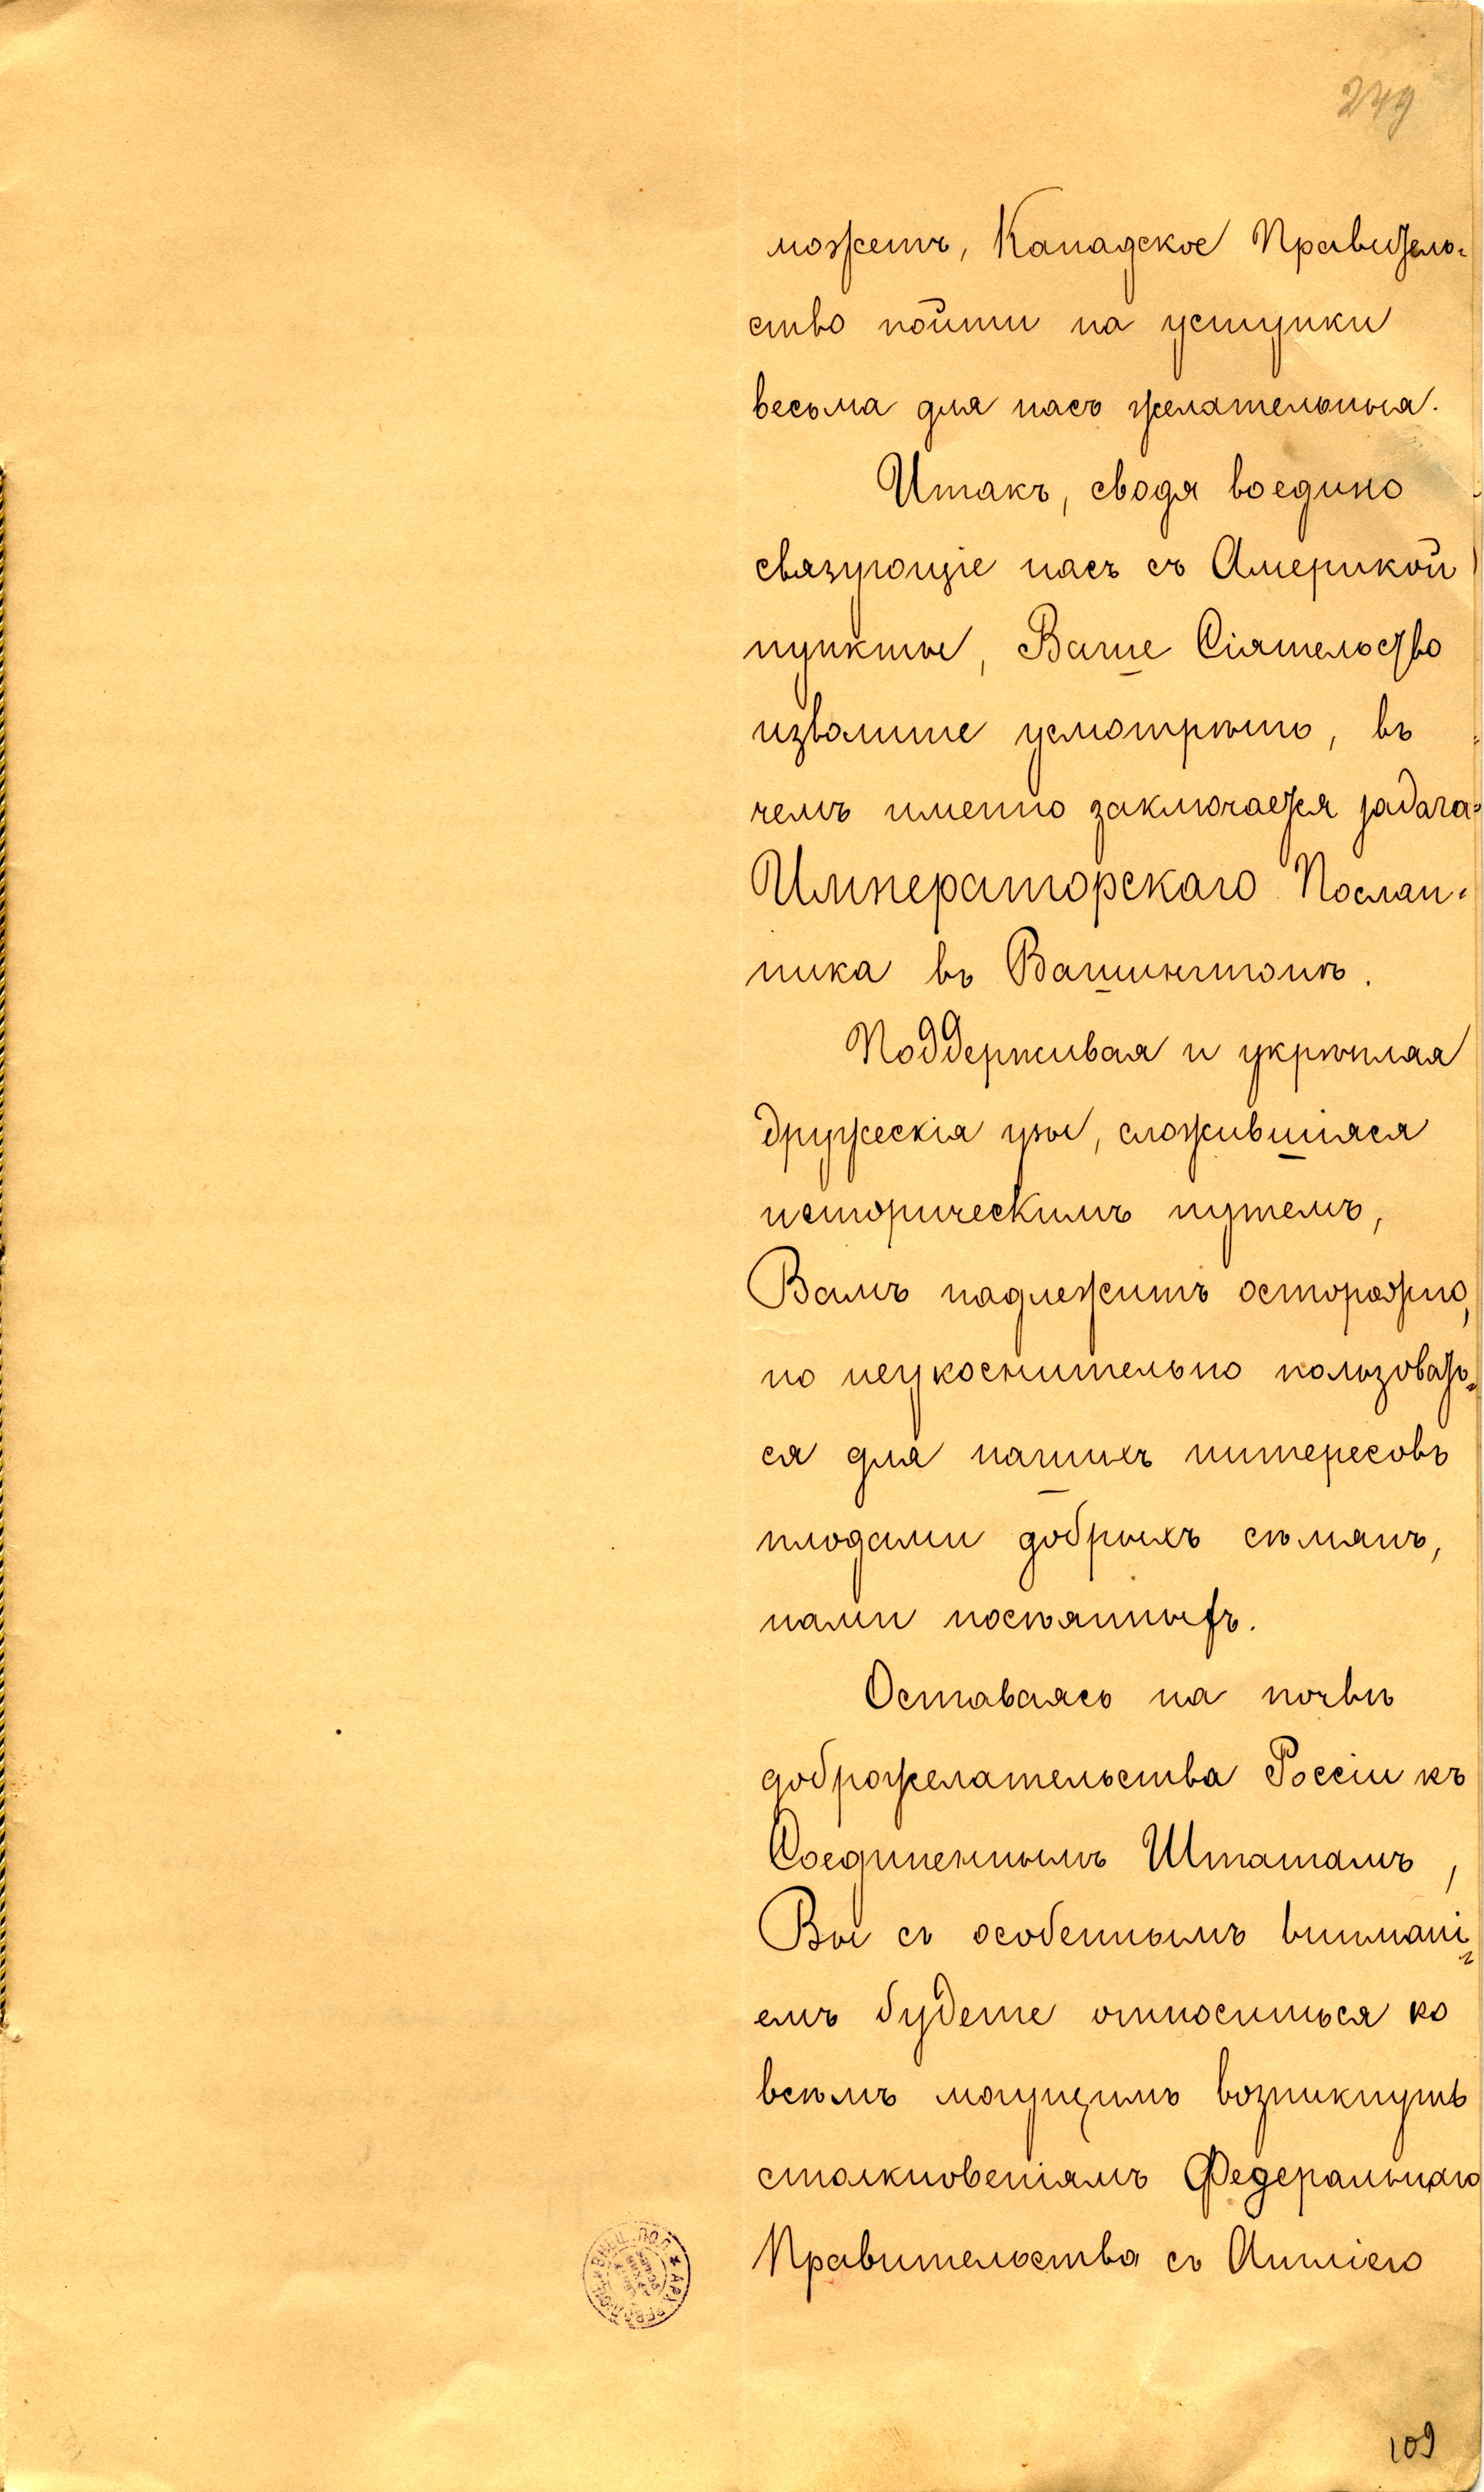 249
можетъ, Канадское Правитель-
ство пойти на уступки
весьма для насъ желательныя.
Итакъ, сводя воедино
связующіе насъ съ Америкой
пункты, Ваше Сіятельство
изволите усмотрѣть, въ
чемъ именно заключается задача
Императорскаго Послан-
ника въ Вашингтонѣ.
Поддерживая и укрѣпляя
дружескія узы, сложившіяся
историческимъ путемъ,
Вамъ надлежитъ осторожно,
но неукоснительно пользовать-
ся для нашихъ интересовъ
плодами добрыхъ сѣмянъ,
нами посѣянныхъ.
Оставаясь на почвѣ
доброжелательства Россіи къ
Соединеннымъ Штатамъ,
Вы съ особеннымъ вниманi-
емъ будете относиться ко
всѣмъ могущимъ возникнуть
столкновеніямъ Федеральнаго
Правительства съ Англіею
109